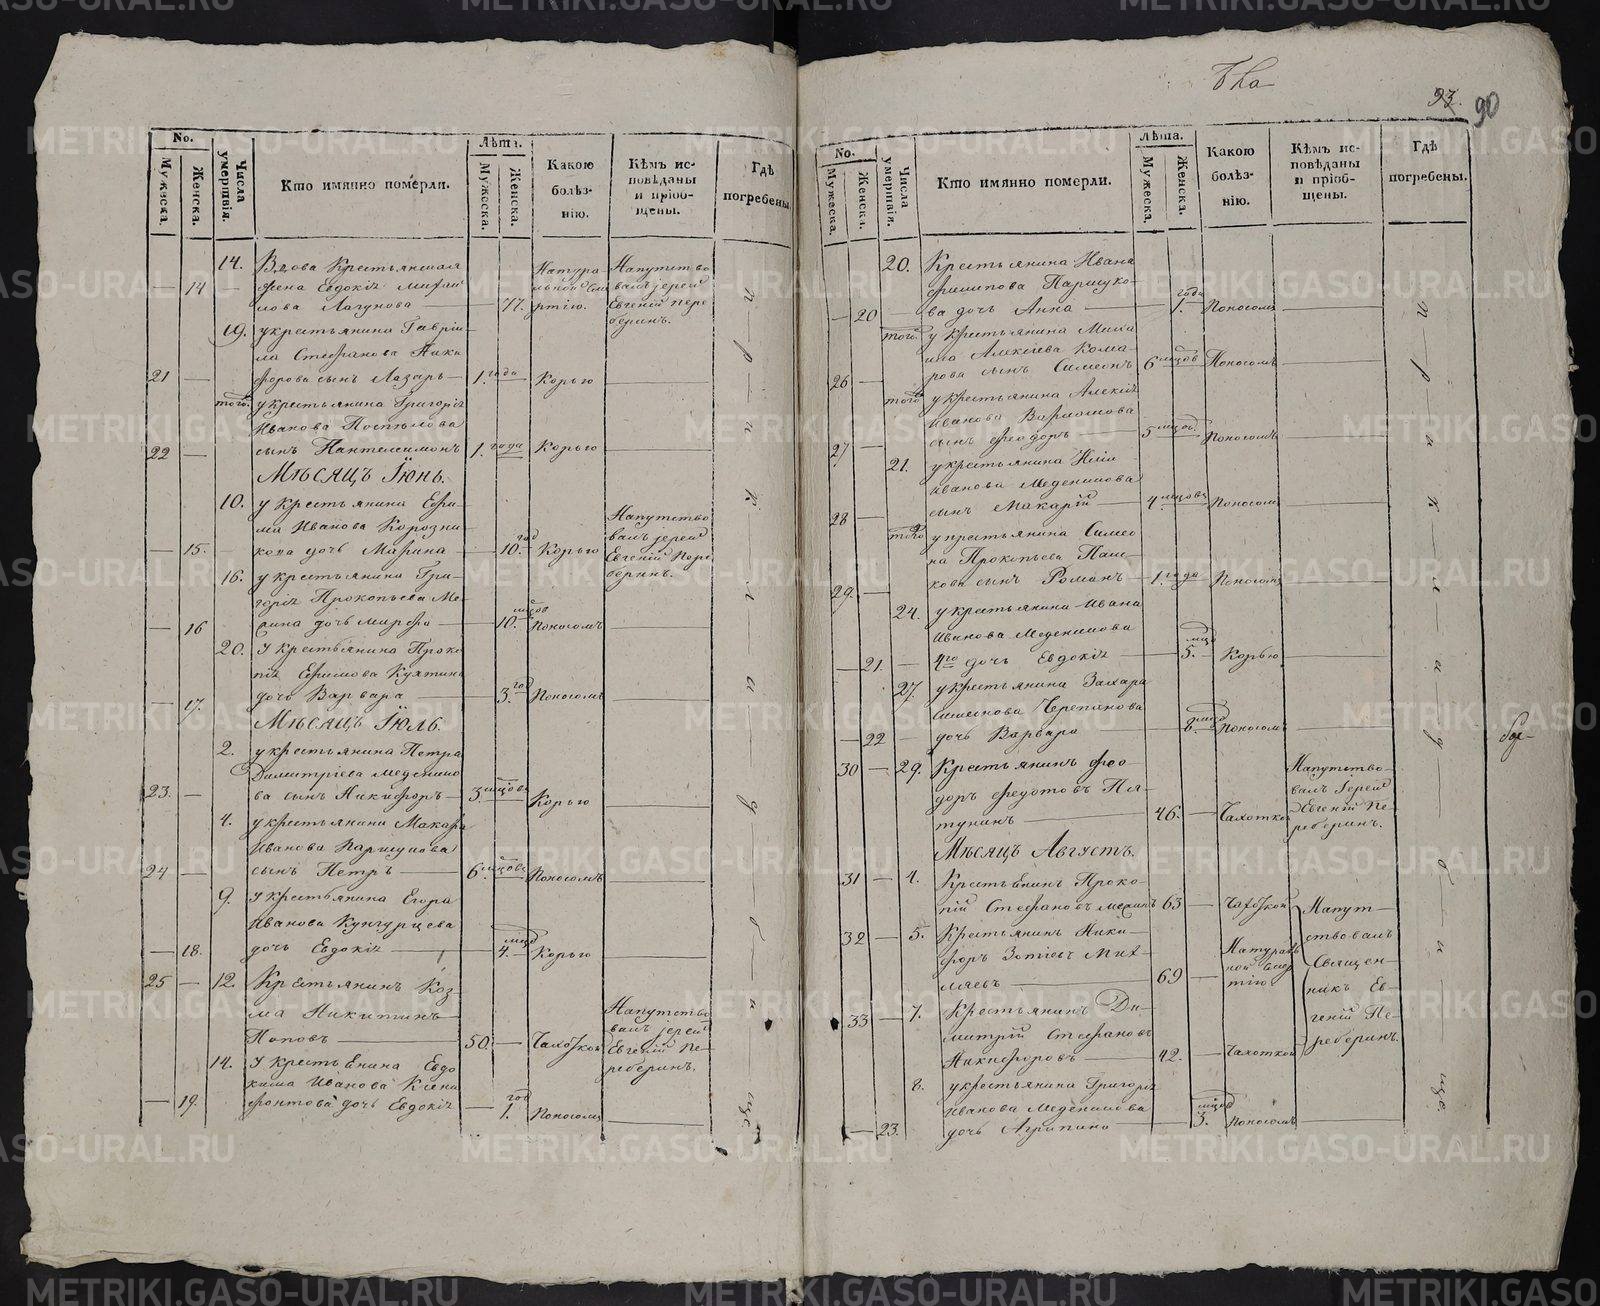 No.
Лѣта.
Мужеска.
Женска.
Числа умертвія.
Кто имянно померли.
Мужеска.
Женска.
Какою болѣз-нію.
Кѣмъ ис-повѣданы и пріоб-щены.
Гдѣ погребены.
14.
Вдова Крестьянская
14
жена Евдокія Михаи
лова Лагунова
77.
Натура
льной см
ертію.
Напутство
валъ іерей
Евгеній Пере
беринъ.
19.
у крестьянина Гаврiи
ла Стефанова Ники
21
форова сынъ Лазарь
1. года
Корью
того
у крестьянина Григорія
Иванова Поспѣлова
22
сынъ Пантелеимонъ
1. года
Корью
Мѣсяцъ Іюнь.
10.
у крестьянина Ефи
ма Иванова
15.
дочь Марина
10. год
Корью
Напутство
валъ іерей
Евгеній Пере
беринъ.
16.
у крестьянина Гри
горія Прокопьева Ме
16
дочь Марфа
10. мцов
Поносомъ
20.
У крестьянина Проко
пія Ефимова
17.
дочь Варвара
3. год
Поносомъ
Мѣсяцъ Іюль.
2.
у крестьянина Петра
Димитріева Меденцо
23.
ва сынъ Никифоръ
3. мцовъ
Корью
4.
у крестьянина Макара
Иванова Паршукова
24
сынъ Петръ
6 мцовъ
Поносомъ
9.
У крестьянина Егора
Иванова Кунгурцева
18.
дочь Евдокія
4. мцов
Корью
25
12.
Крестьянинъ Коз
ма Никитинъ
Поповъ
50.
Чахоткой
Напутство
валъ іерей
Евгеній Пе
реберинъ.
14.
У крестьянина Евдо
кима Иванова Ксено
19.
фонтова дочь Евдокія
1. год
Поносомъ
93.
90
No.
Лѣта.
Мужеска.
Женска.
Числа умертвія.
Кто имянно померли.
Мужеска.
Женска.
Какою болѣз-нію.
Кѣмъ ис-повѣданы и пріоб-щены.
Гдѣ погребены.
20.
Крестьянина Ивана
Филипова Паршуко
20
ва дочь Анна
1. года
Поносомъ
того
у крестьянина Миха
ила Алексіева Кома
26
рова сынъ Симеонъ
6 мцовъ
Поносомъ
того
у крестьянина Алексія
Иванова
27
сынъ Феодоръ
5 мцов.
Поносомъ
21.
у крестьянина Иліи
Иванова Меденцова
28
сынъ Макарій
4. мцовъ
Поносомъ
того
у крестьянина Симео
на Прокопьева Паш
29.
кова сынъ Романъ
1. года
Поносомъ
24.
у крестьянина Ивана
Иванова Меденцова
21.
4го дочь Евдокія
5. мцо
Корью
27.
у крестьянина Захара
Симеонова Черепанова
22
дочь Варвара
8. мцов
Поносомъ
30
29.
Крестьянинъ Фео
доръ Федотовъ Пя
тунинъ
46.
Чахоткой
Напутство
валъ Іерей
Евгеній Пе
реберинъ.
Мѣсяцъ Августъ.
31
4.
Крестьянинъ Проко
пій Стефановъ
63
Чахоткой
Напут
ствовалъ
Священ
никъ Ев
геній Пе
реберинъ.
32
5.
Крестьянинъ Ники
форъ Зотіевъ Мих
ляевъ
69
Натураль
ной смер
тію
33
7.
Крестьянинъ Ди
митрій Стефановъ
Никифоровъ
42.
Чахоткой
8.
у крестьянина Григорія
Иванова Меденцова
23.
дочь Агрипина
3. мцов
Поносомъ
METRIKI.GASO-URAL.RU